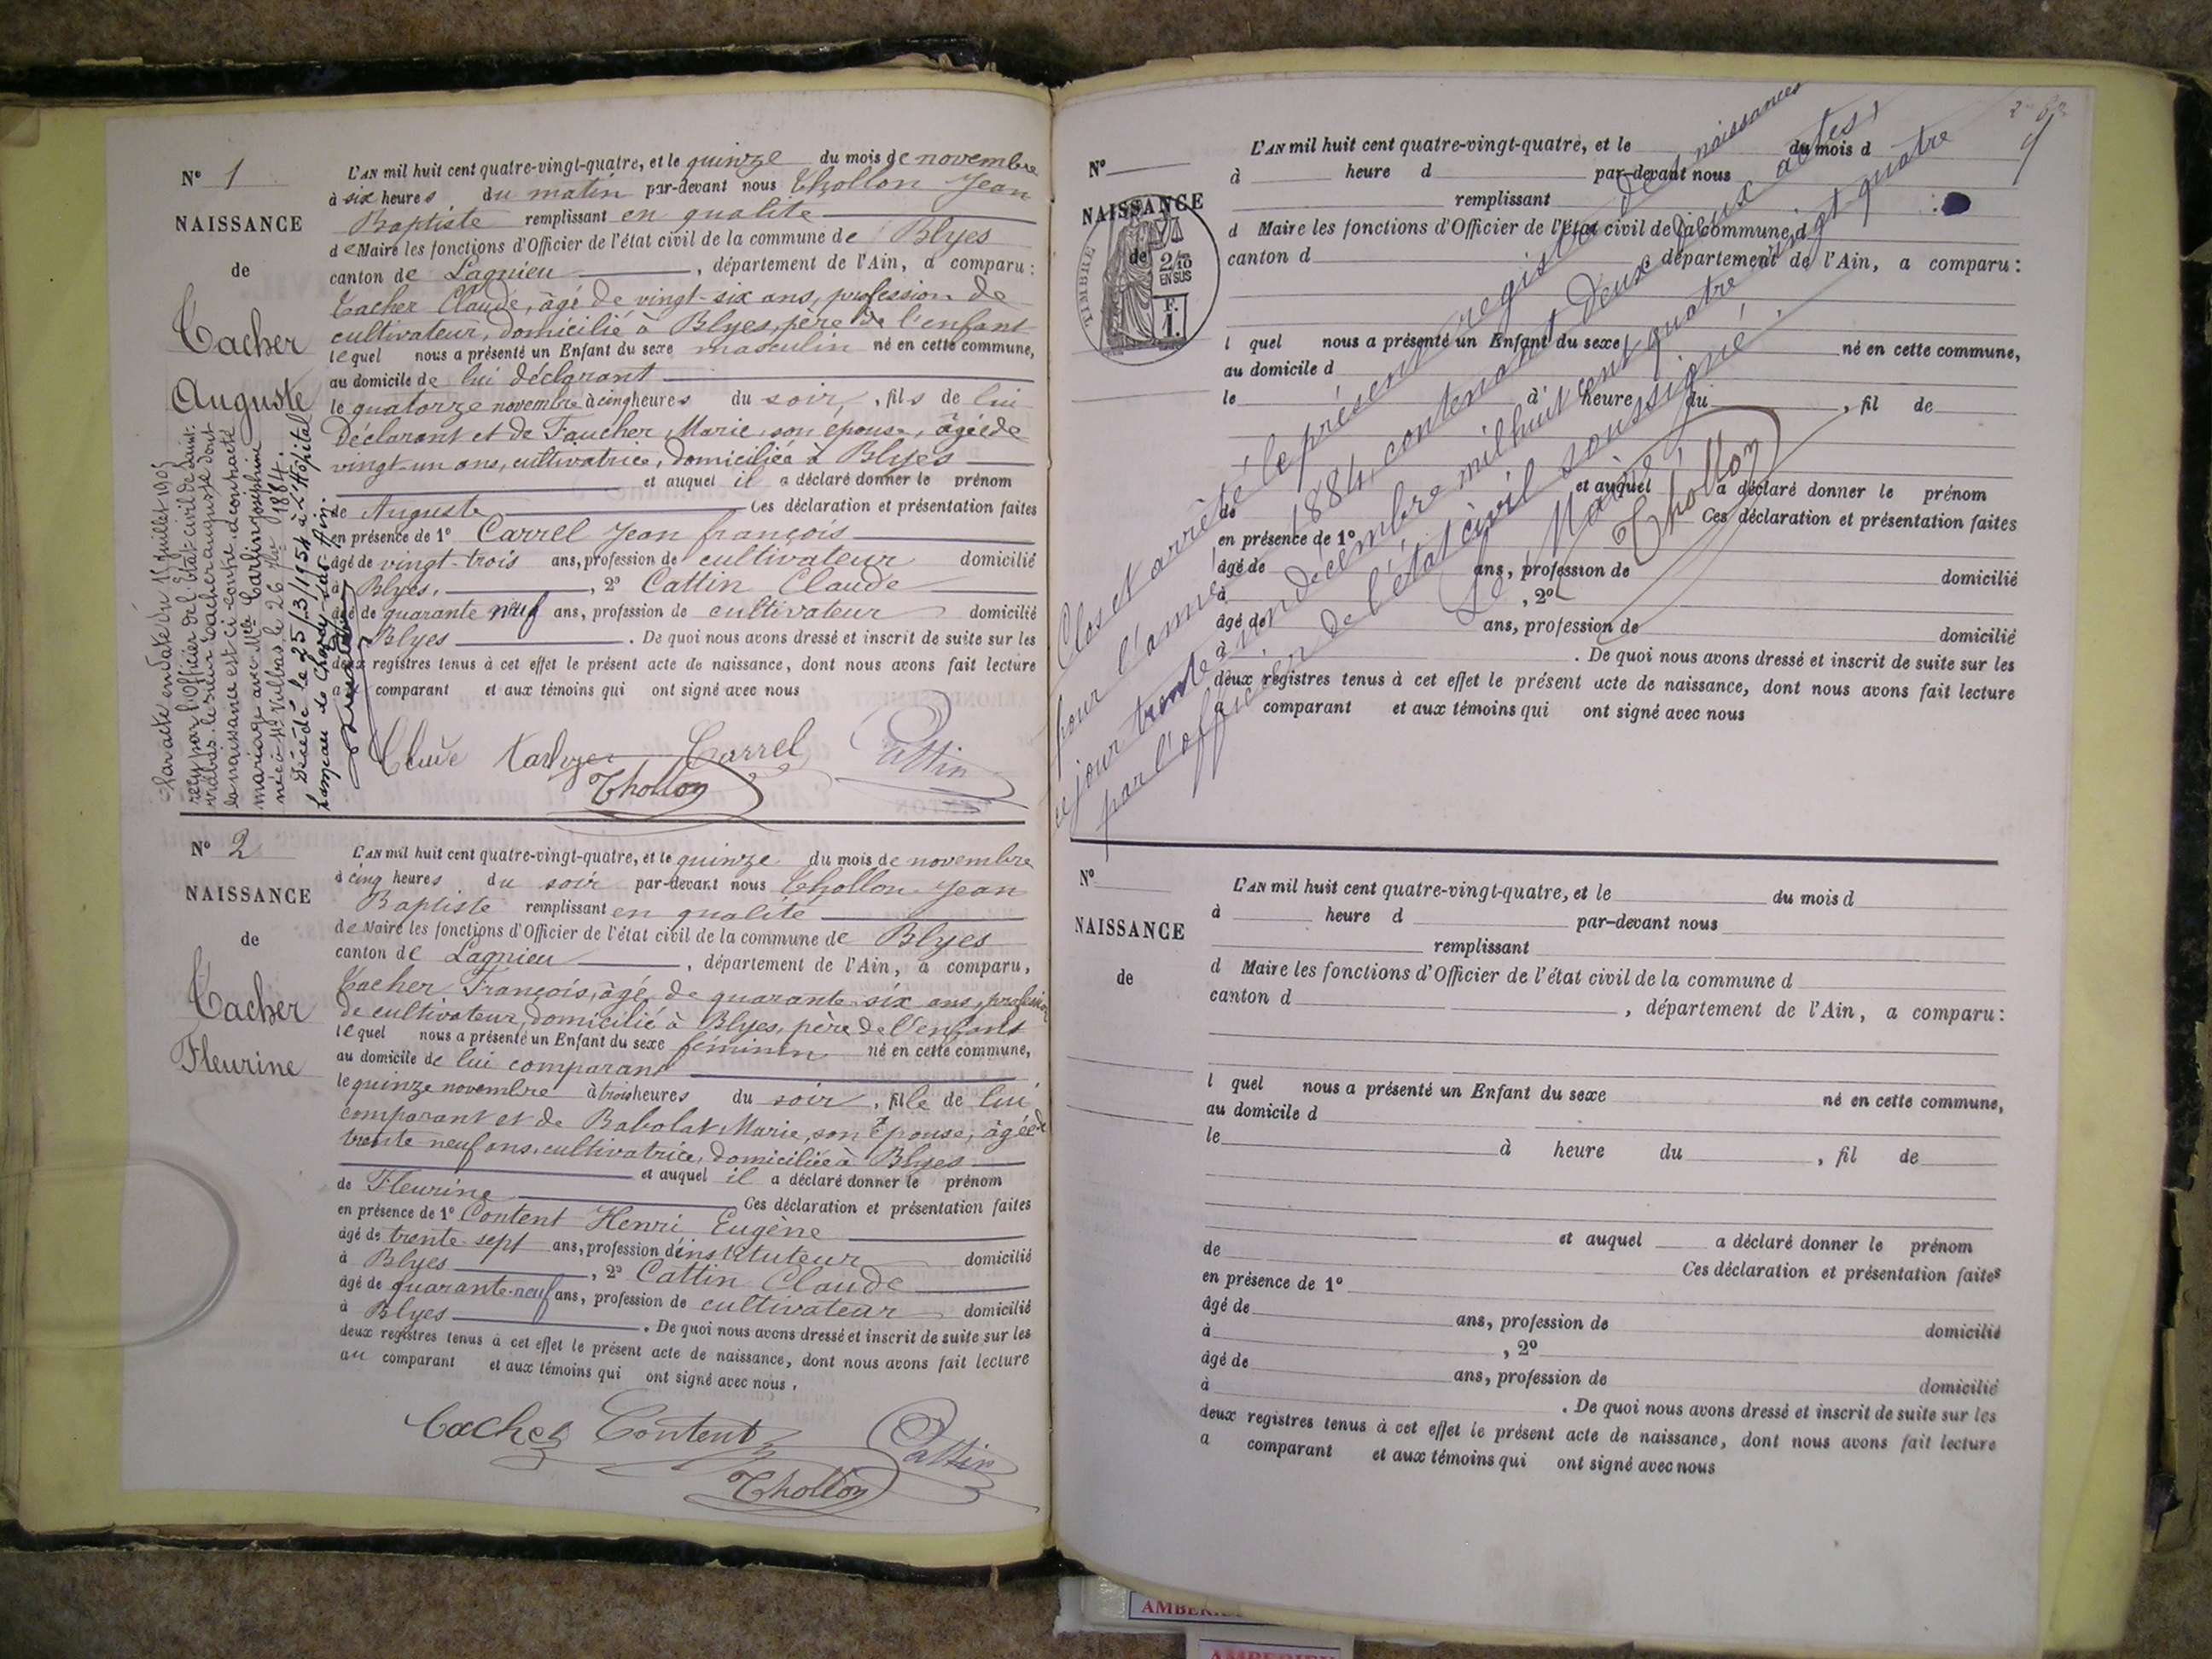 N° 1
NAISSANCE
de
Tacher
Auguste
L'AN mil huit cent quatre-vingt-quatre, et le quinze du mois de novembre
à six heures du matin par-devant nous Thollon Jean
Baptiste remplissant en qualité
de Maire les fonctions d'Officier de l'état civil de la commune de Blyes
canton de Lagnieu, département de l'Ain, a comparu :
Tacher Claude, âgé de vingt-six ans, profession de
cultivateur, domicilié à Blyes, père de l'enfant
lequel nous a présenté un Enfant du sexe masculin né en cette commune,
au domicile de lui déclarant
le quatorze novembre à cinq heures du soir, fils de lui
déclarant et de Faucher Marie, son épouse, âgée de
vingt-un ans, cultivatrice, domiciliée à Blyes
et auquel il a déclaré donner le prénom
de Auguste Ces déclaration et présentation faites
en présence de 1° Carrel Jean françois
âgé de vingt-trois ans, profession de cultivateur domicilié
à Blyes, 2° Cattin Claude
âgé de quarante neuf ans, profession de cultivateur domicilié
Blyes. De quoi nous avons dressé et inscrit de suite sur les
deux registres tenus à cet effet le présent acte de naissance, dont nous avons fait lecture
comparant et aux témoins qui ont signé avec nous
Claude Carrel Cattin
Thollon
Par acte en date du juillet 1905
reçu par l'Officier de l'état civil de Saint-
Vulbas, le sieur Tacher auguste dont
la naissance est ci-contre, a contracté
mariage avec Mlle Carlin joséphine
née à St Vulbas le 26 1884.
Décédé le 25/3/1954 à l'Hôpital
hameau de Ain.
N° 2
NAISSANCE
de
Tacher
Fleurine
L'AN mil huit cent quatre-vingt-quatre, et le quinze du mois de novembre
à cinq heures du soir par-devant nous Thollon Jean
Baptiste remplissant en qualité
de Maire les fonctions d'Officier de l'état civil de la commune de Blyes
canton de Lagnieu, département de l'Ain, a comparu,
Tacher François, âgé de quarante-six ans, profession
de cultivateur, domicilié à Blyes, père de l'enfant
lequel nous a présenté un Enfant du sexe féminin né en cette commune,
au domicile de lui comparant
le quinze novembre à trois heures du soir, fille de lui
comparant et de Babolat Marie, son épouse, âgée de
trente neuf ans, cultivatrice, domiciliée à Blyes
et auquel il a déclaré donner le prénom
de Fleurine Ces déclaration et présentation faites
en présence de 1° Content Henri Eugène
âgé de trente-sept ans, profession d'instituteur domicilié
à Blyes, 2° Cattin Claude
âgé de quarante-neuf ans, profession de cultivateur domicilié
à Blyes. De quoi nous avons dressé et inscrit de suite sur les
deux registres tenus à cet effet le présent acte de naissance, dont nous avons fait lecture
au comparant et aux témoins qui ont signé avec nous.
Tacher Content Cattin
Thollon
N°
NAISSANCE
de
TIMBRE
2/10
EN SUS
F.
1.
L'AN mil huit cent quatre-vingt-quatre, et le du mois d
à heure d par-devant nous
remplissant
d Maire les fonctions d'Officier de l'état civil de la commune d
canton d, département de l'Ain, a comparu :
l quel nous a présenté un Enfant du sexe né en cette commune,
au domicile d
le à heure du, fil de
et auquel a déclaré donner le prénom
de Ces déclaration et présentation faites
en présence de 1°
âgé de ans, profession de domicilié
à, 2°
âgé de ans, profession de domicilié
à. De quoi nous avons dressé et inscrit de suite sur les
deux registres tenus à cet effet le présent acte de naissance, dont nous avons fait lecture
a comparant et aux témoins qui ont signé avec nous
Clos et arrêté le présent registre des naissances
pour l'année 1884, contenant deux actes,
ce jour trente un décembre mil huit cent quatre vingt quatre
par l'officier de l'état civil soussigné.
Le Maire,
Thollon
N°
NAISSANCE
de
L'AN mil huit cent quatre-vingt-quatre, et le du mois d
à heure d par-devant nous
remplissant
d Maire les fonctions d'Officier de l'état civil de la commune d
canton d, département de l'Ain, a comparu :
l quel nous a présenté un Enfant du sexe né en cette commune,
au domicile d
le à heure du, fil de
et auquel a déclaré donner le prénom
de Ces déclaration et présentation faites
en présence de 1°
âgé de ans, profession de domicilié
à, 2°
âgé de ans, profession de domicilié
à. De quoi nous avons dressé et inscrit de suite sur les
deux registres tenus à cet effet le présent acte de naissance, dont nous avons fait lecture
a comparant et aux témoins qui ont signé avec nous